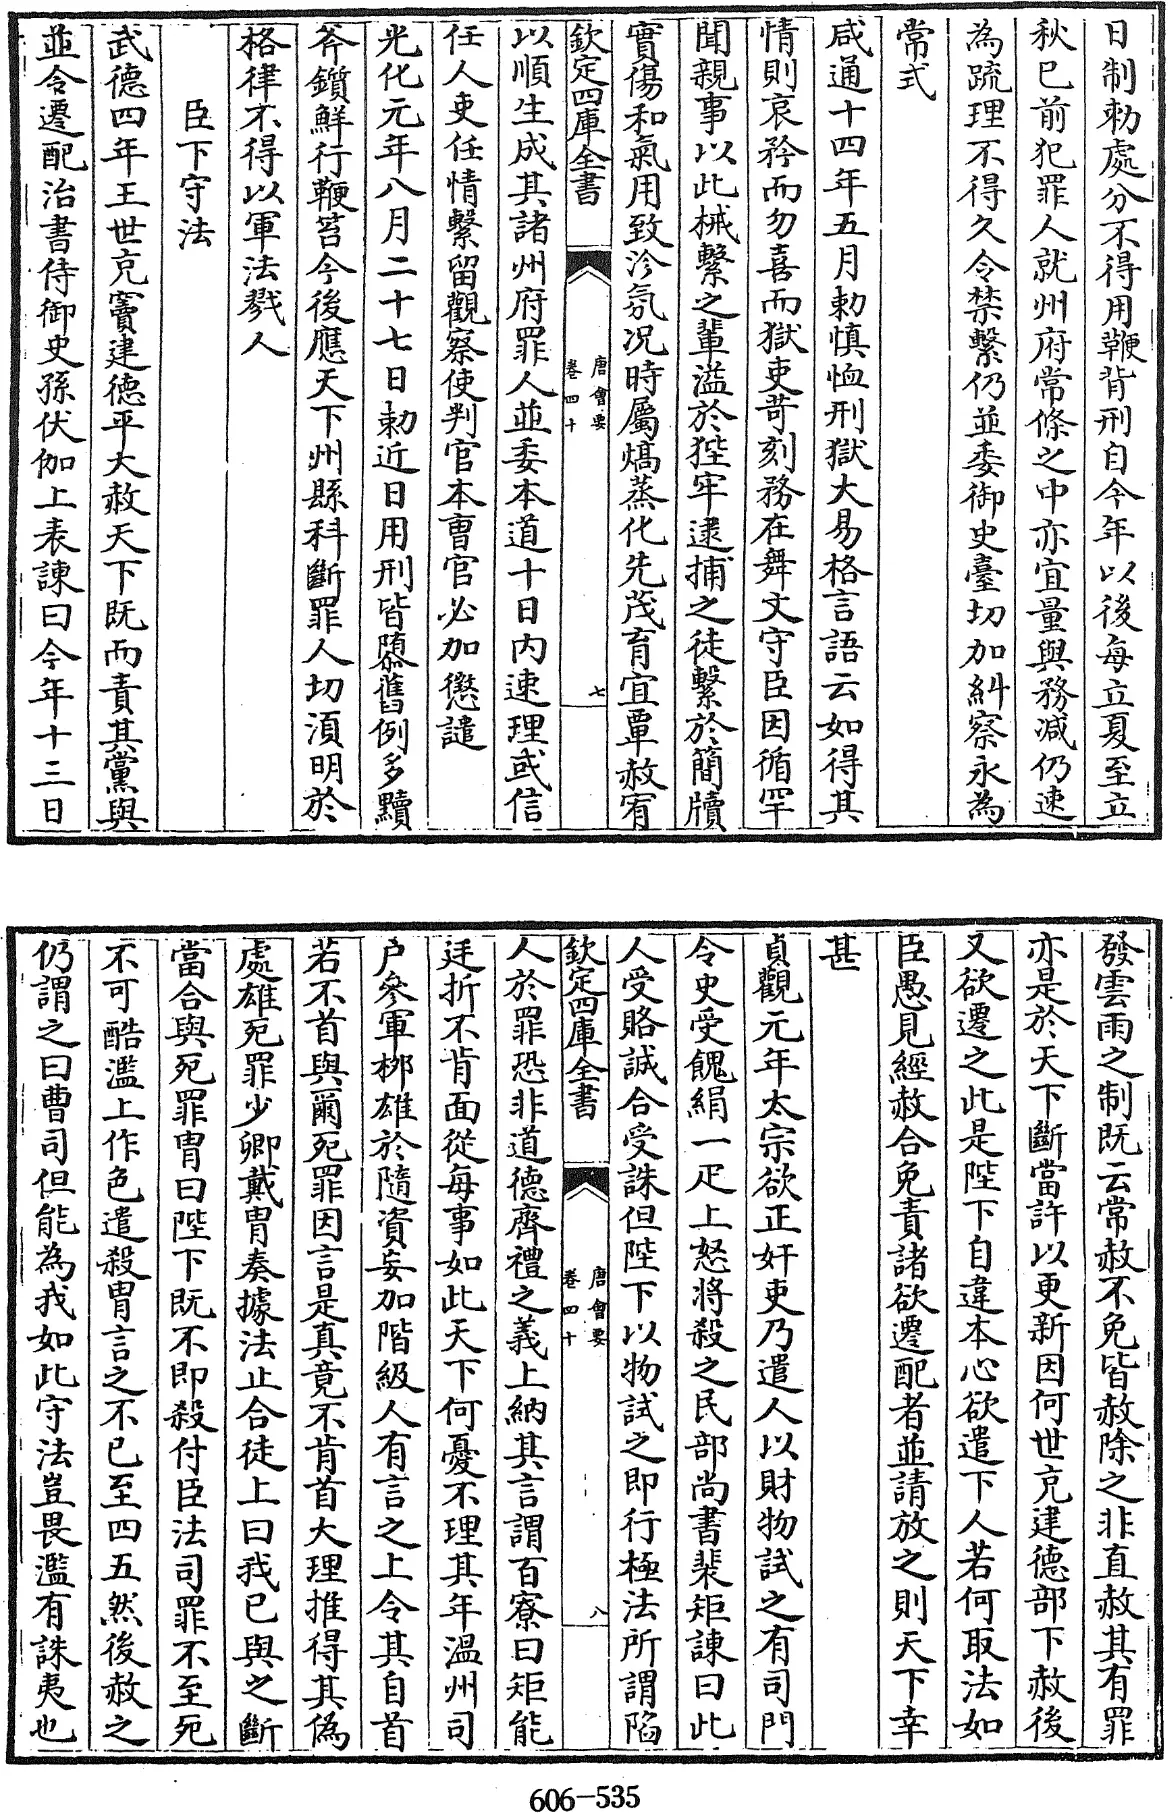 日制勅處分不得用鞭背刑自今年以後每立夏至立
秋已前犯罪人就州府常條之中亦宜量與務減仍速
為疏理不得久令禁繫仍並委御史臺切加糾察永為
常式
咸通十四年五月勅慎恤刑獄大易格言語云如得其
情則哀矜而勿喜而獄吏苛刻務在舞文守臣因循罕
聞親事以此械繫之輩溢於狴牢逮捕之徒繫於簡牘
實傷和氣用致沴氛况時屬熇蒸化先茂育宜覃赦宥
欽定四庫全書
唐會要
卷四十
七
以順生成其諸州府罪人並委本道十日内速理或信
任人吏任情繫留觀察使判官本曹官必加懲譴
光化元年八月二十七日勅近日用刑皆隳舊例多黷
斧鑕鮮行鞭笞今後應天下州縣科斷罪人切湏明於
格律不得以軍法戮人
臣下守法
武德四年王世充竇建德平大赦天下既而責其黨與
並令遷配治書侍御史孫伏伽上表諫曰今年十三日
發雲雨之制既云常赦不免皆赦除之非直赦其有罪
亦是於天下斷當許以更新因何世充建德部下赦後
又欲遷之此是陛下自違本心欲遣下人若何取法如
臣愚見經赦合免責諸欲遷配者並請放之則天下幸
甚
貞觀元年太宗欲正奸吏乃遣人以財物試之有司門
令史受餽絹一疋上怒將殺之民部尚書裴矩諫曰此
人受賂誠合受誅但陛下以物試之即行極法所謂陷
欽定四庫全書
唐會要
卷四十
八
人於罪恐非道德齊禮之義上納其言謂百寮曰矩能
廷折不肯面從每事如此天下何憂不理其年温州司
户參軍栁雄於隨資妄加階級人有言之上令其自首
若不首與爾死罪因言是真竟不肯首大理推得其偽
處雄死罪少卿戴胄奏據法止合徒上曰我已與之斷
當合與死罪胄曰陛下既不即殺付臣法司罪不至死
不可酷濫上作色遣殺胄言之不已至四五然後赦之
仍謂之曰曹司但能為我如此守法豈畏濫有誅夷也
606-535